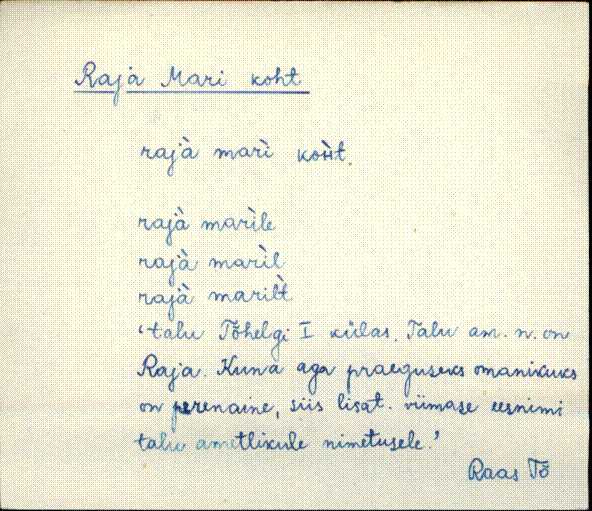 Raja Mari koht
rajà marì koh̀t.
rajà marìle
rajà marìl
rajà marilt̀
'talu Tõhelgi I külas. Talu am. n. on
Raja. Kuna aga praeguseks omanikuks
on perenaine, siis lisat. viimase eesnimi
talu ametlikule nimetusele.'
Raas Tõ